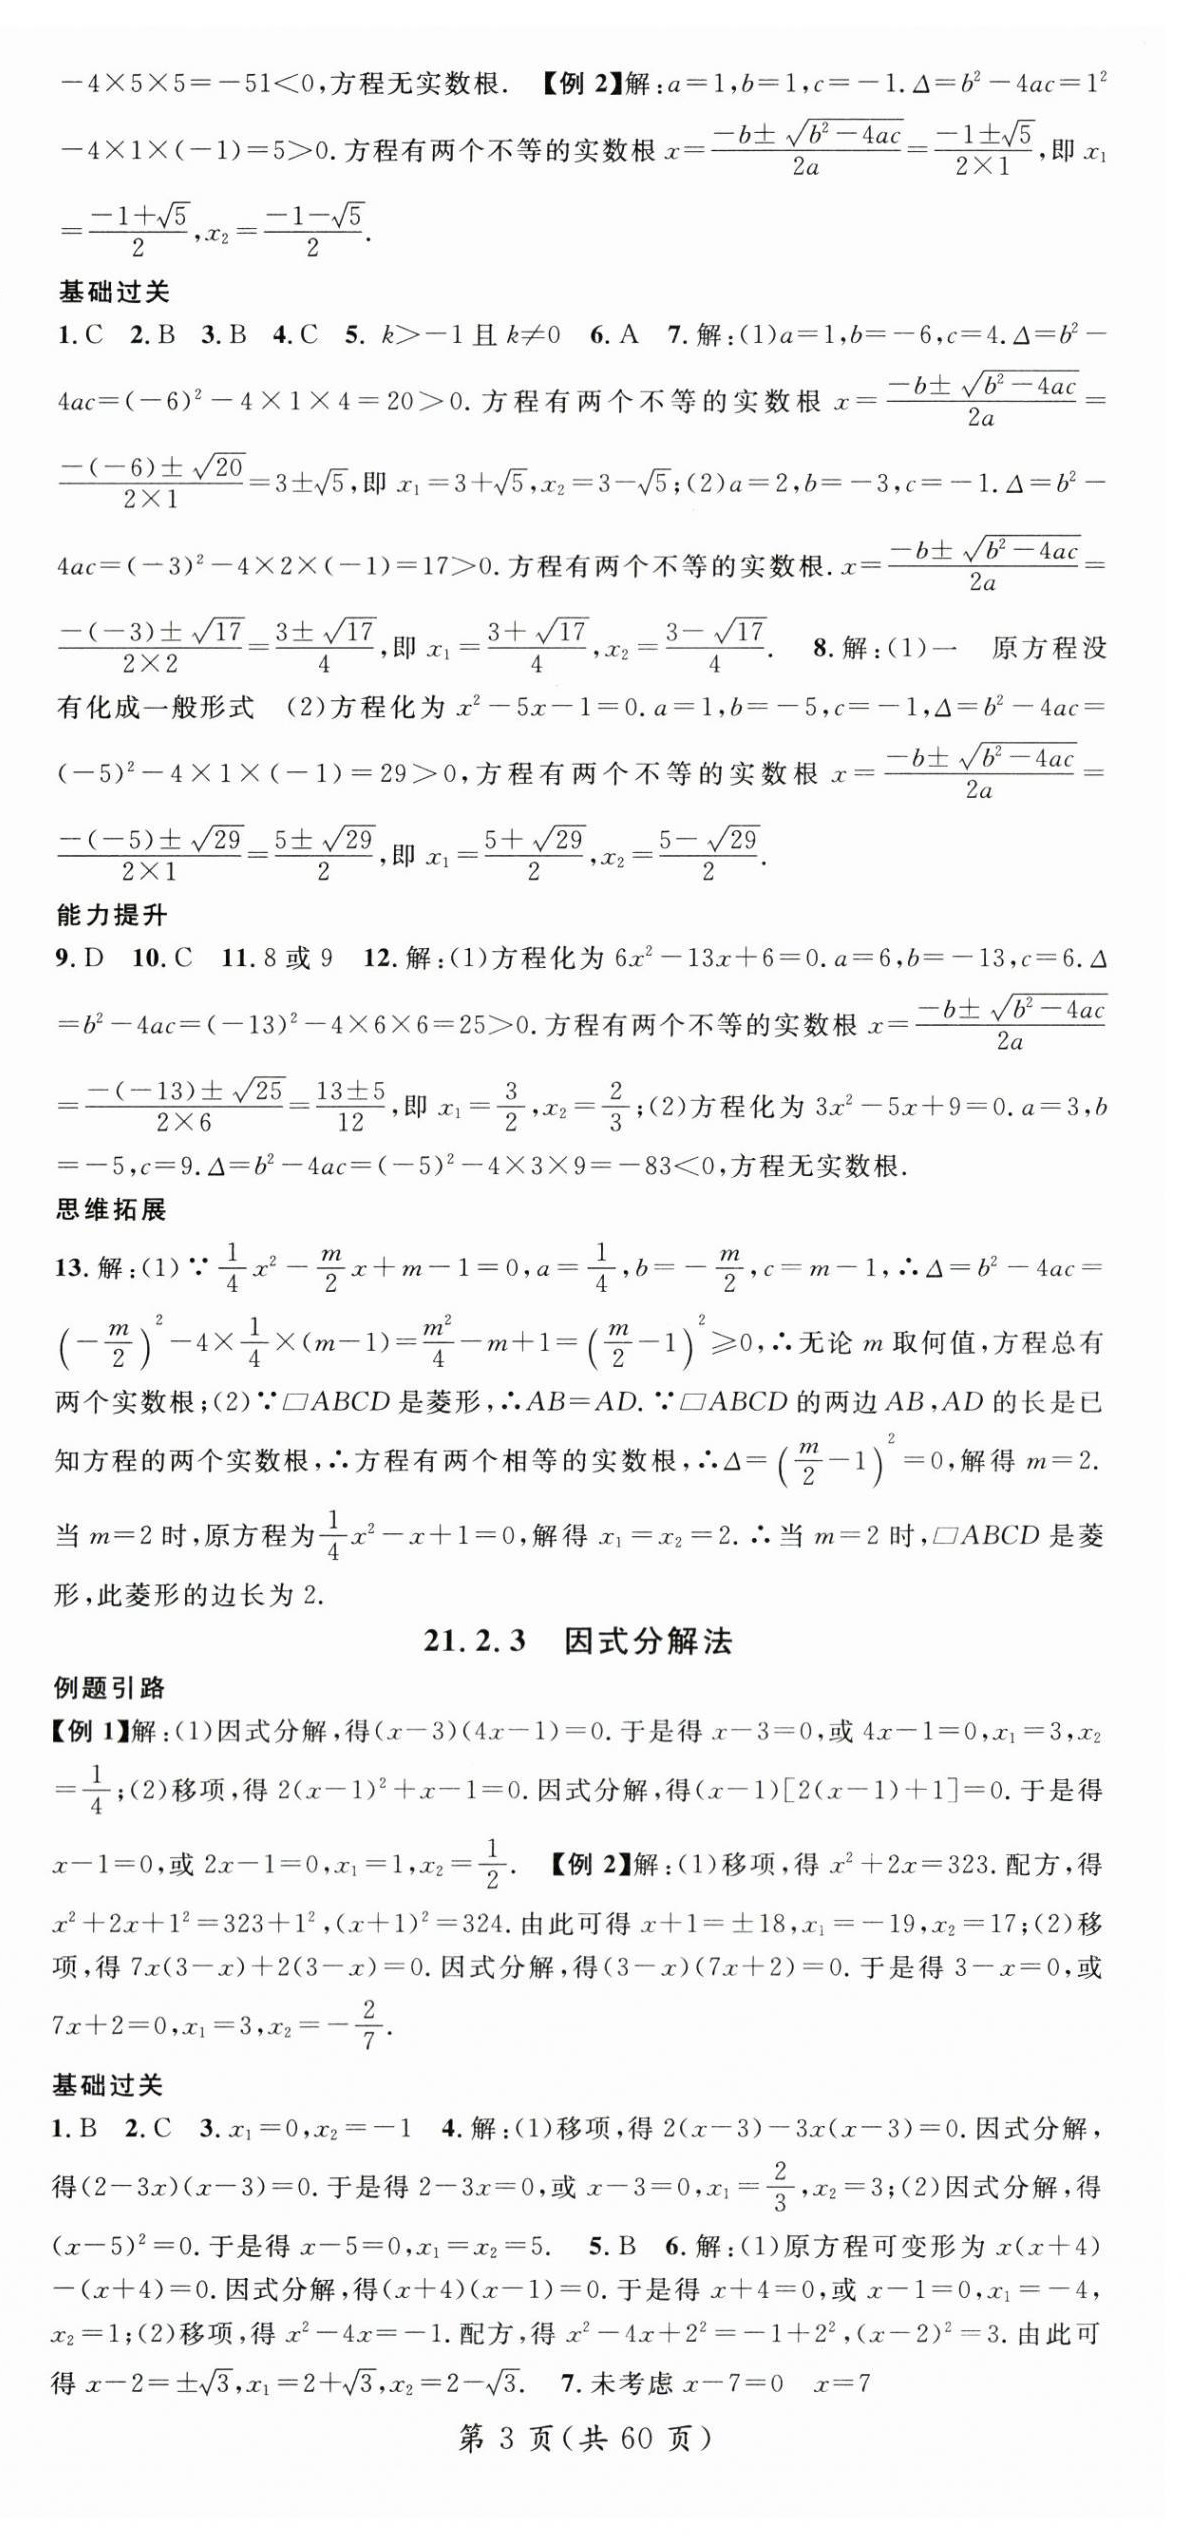 －4×5×5＝－51＜0,方程无实数根. 【例 2】解:a＝1,b＝1,c＝－1.Δ＝b²－4ac＝1²
－4×1×(－1)＝5＞0.方程有两个不等的实数根 x＝(－b±√(b²－4ac))/(2a)＝(－1±√5)/(2×1),即 x₁
＝(－1＋√5)/2,x₂＝(－1－√5)/2.
基础过关
1. C 2. B 3. B 4. C 5. k＞－1 且 k≠0 6. A 7. 解:(1)a＝1,b＝－6,c＝4.Δ＝b²－
4ac＝(－6)²－4×1×4＝20＞0.方程有两个不等的实数根 x＝(－b±√(b²－4ac))/(2a)＝
(－(－6)±√20)/(2×1)＝3±√5,即 x₁＝3＋√5,x₂＝3－√5;(2)a＝2,b＝－3,c＝－1.Δ＝b²－
4ac＝(－3)²－4×2×(－1)＝17＞0.方程有两个不等的实数根.x＝(－b±√(b²－4ac))/(2a)＝
(－(－3)±√17)/(2×2)＝(3±√17)/4,即 x₁＝(3＋√17)/4,x₂＝(3－√17)/4. 8. 解:(1)一 原方程没
有化成一般形式 (2)方程化为 x²－5x－1＝0.a＝1,b＝－5,c＝－1,Δ＝b²－4ac＝
(－5)²－4×1×(－1)＝29＞0,方程有两个不等的实数根 x＝(－b±√(b²－4ac))/(2a)＝
(－(－5)±√29)/(2×1)＝(5±√29)/2,即 x₁＝(5＋√29)/2,x₂＝(5－√29)/2.
能力提升
9. D 10. C 11. 8 或 9 12. 解:(1)方程化为 6x²－13x＋6＝0.a＝6,b＝－13,c＝6.Δ
＝b²－4ac＝(－13)²－4×6×6＝25＞0.方程有两个不等的实数根 x＝(－b±√(b²－4ac))/(2a)
＝(－(－13)±√25)/(2×6)＝(13±5)/12,即 x₁＝3/2,x₂＝2/3;(2)方程化为 3x²－5x＋9＝0.a＝3,b
＝－5,c＝9.Δ＝b²－4ac＝(－5)²－4×3×9＝－83＜0,方程无实数根.
思维拓展
13. 解:(1)∵(1/4)x²－(m/2)x＋m－1＝0,a＝1/4,b＝－m/2,c＝m－1,∴Δ＝b²－4ac＝
(－m/2)²－4×1/4×(m－1)＝m²/4－m＋1＝(m/2－1)²≥0,∴无论 m 取何值,方程总有
两个实数根;(2)∵▱ABCD 是菱形,∴AB＝AD.∵▱ABCD 的两边 AB,AD 的长是已
知方程的两个实数根,∴方程有两个相等的实数根,∴Δ＝(m/2－1)²＝0,解得 m＝2.
当 m＝2 时,原方程为(1/4)x²－x＋1＝0,解得 x₁＝x₂＝2.∴当 m＝2 时,▱ABCD 是菱
形,此菱形的边长为 2.
21.2.3 因式分解法
例题引路
【例 1】解:(1)因式分解,得(x－3)(4x－1)＝0.于是得 x－3＝0,或 4x－1＝0,x₁＝3,x₂
＝1/4;(2)移项,得 2(x－1)²＋x－1＝0.因式分解,得(x－1)[2(x－1)＋1]＝0.于是得
x－1＝0,或 2x－1＝0,x₁＝1,x₂＝1/2. 【例 2】解:(1)移项,得 x²＋2x＝323.配方,得
x²＋2x＋1²＝323＋1²,(x＋1)²＝324.由此可得 x＋1＝±18,x₁＝－19,x₂＝17;(2)移
项,得 7x(3－x)＋2(3－x)＝0.因式分解,得(3－x)(7x＋2)＝0.于是得 3－x＝0,或
7x＋2＝0,x₁＝3,x₂＝－2/7.
基础过关
1. B 2. C 3. x₁＝0,x₂＝－1 4. 解:(1)移项,得 2(x－3)－3x(x－3)＝0.因式分解,
得(2－3x)(x－3)＝0.于是得 2－3x＝0,或 x－3＝0,x₁＝2/3,x₂＝3;(2)因式分解,得
(x－5)²＝0.于是得 x－5＝0,x₁＝x₂＝5. 5. B 6. 解:(1)原方程可变形为 x(x＋4)
－(x＋4)＝0.因式分解,得(x＋4)(x－1)＝0.于是得 x＋4＝0,或 x－1＝0,x₁＝－4,
x₂＝1;(2)移项,得 x²－4x＝－1.配方,得 x²－4x＋2²＝－1＋2²,(x－2)²＝3.由此可
得 x－2＝±√3,x₁＝2＋√3,x₂＝2－√3. 7. 未考虑 x－7＝0 x＝7
第 3 页(共 60 页)